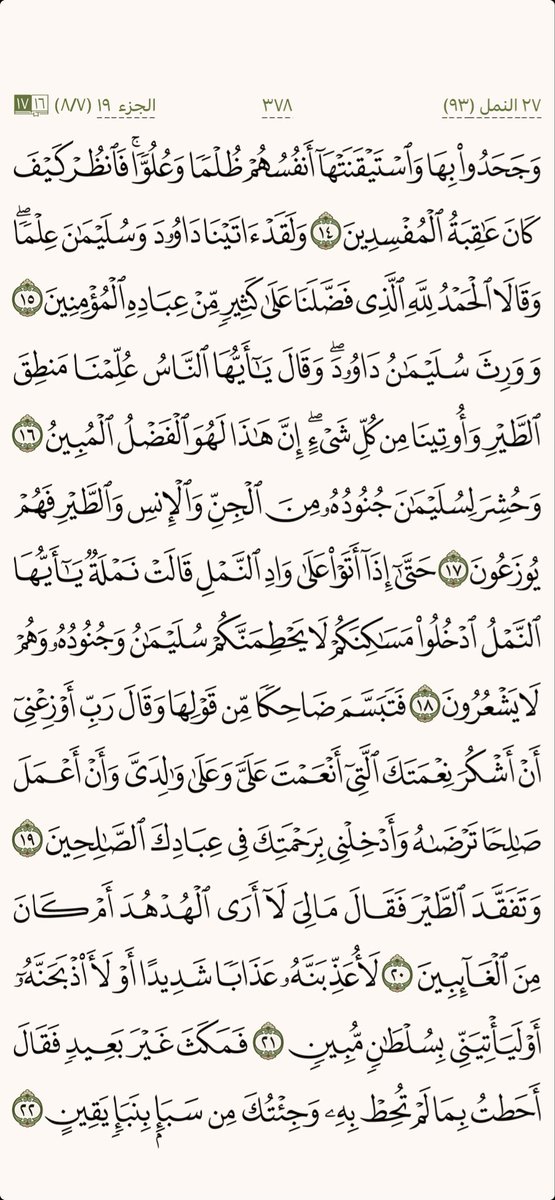 ٢٧ النمل (٩٣) ٣٧٨ الجزء ١٩ (٨/٧) ١٦ ١٧
وَجَحَدُوا۟ بِهَا وَٱسْتَيْقَنَتْهَآ أَنفُسُهُمْ ظُلْمًا وَعُلُوًّا ۚ فَٱنظُرْ كَيْفَ
كَانَ عَـٰقِبَةُ ٱلْمُفْسِدِينَ ١٤ وَلَقَدْ ءَاتَيْنَا دَاوُۥدَ وَسُلَيْمَـٰنَ عِلْمًا ۖ
وَقَالَا ٱلْحَمْدُ لِلَّهِ ٱلَّذِى فَضَّلَنَا عَلَىٰ كَثِيرٍ مِّنْ عِبَادِهِ ٱلْمُؤْمِنِينَ ١٥
وَوَرِثَ سُلَيْمَـٰنُ دَاوُۥدَ ۖ وَقَالَ يَـٰٓأَيُّهَا ٱلنَّاسُ عُلِّمْنَا مَنطِقَ
ٱلطَّيْرِ وَأُوتِينَا مِن كُلِّ شَىْءٍ ۖ إِنَّ هَـٰذَا لَهُوَ ٱلْفَضْلُ ٱلْمُبِينُ ١٦
وَحُشِرَ لِسُلَيْمَـٰنَ جُنُودُهُۥ مِنَ ٱلْجِنِّ وَٱلْإِنسِ وَٱلطَّيْرِ فَهُمْ
يُوزَعُونَ ١٧ حَتَّىٰٓ إِذَآ أَتَوْا۟ عَلَىٰ وَادِ ٱلنَّمْلِ قَالَتْ نَمْلَةٌ يَـٰٓأَيُّهَا
ٱلنَّمْلُ ٱدْخُلُوا۟ مَسَـٰكِنَكُمْ لَا يَحْطِمَنَّكُمْ سُلَيْمَـٰنُ وَجُنُودُهُۥ وَهُمْ
لَا يَشْعُرُونَ ١٨ فَتَبَسَّمَ ضَاحِكًا مِّن قَوْلِهَا وَقَالَ رَبِّ أَوْزِعْنِىٓ
أَنْ أَشْكُرَ نِعْمَتَكَ ٱلَّتِىٓ أَنْعَمْتَ عَلَىَّ وَعَلَىٰ وَٰلِدَىَّ وَأَنْ أَعْمَلَ
صَـٰلِحًا تَرْضَىٰهُ وَأَدْخِلْنِى بِرَحْمَتِكَ فِى عِبَادِكَ ٱلصَّـٰلِحِينَ ١٩
وَتَفَقَّدَ ٱلطَّيْرَ فَقَالَ مَالِىَ لَآ أَرَى ٱلْهُدْهُدَ أَمْ كَانَ
مِنَ ٱلْغَآئِبِينَ ٢٠ لَأُعَذِّبَنَّهُۥ عَذَابًا شَدِيدًا أَوْ لَأَا۟ذْبَحَنَّهُۥٓ
أَوْ لَيَأْتِيَنِّى بِسُلْطَـٰنٍ مُّبِينٍ ٢١ فَمَكَثَ غَيْرَ بَعِيدٍ فَقَالَ
أَحَطتُ بِمَا لَمْ تُحِطْ بِهِۦ وَجِئْتُكَ مِن سَبَإٍۭ بِنَبَإٍ يَقِينٍ ٢٢